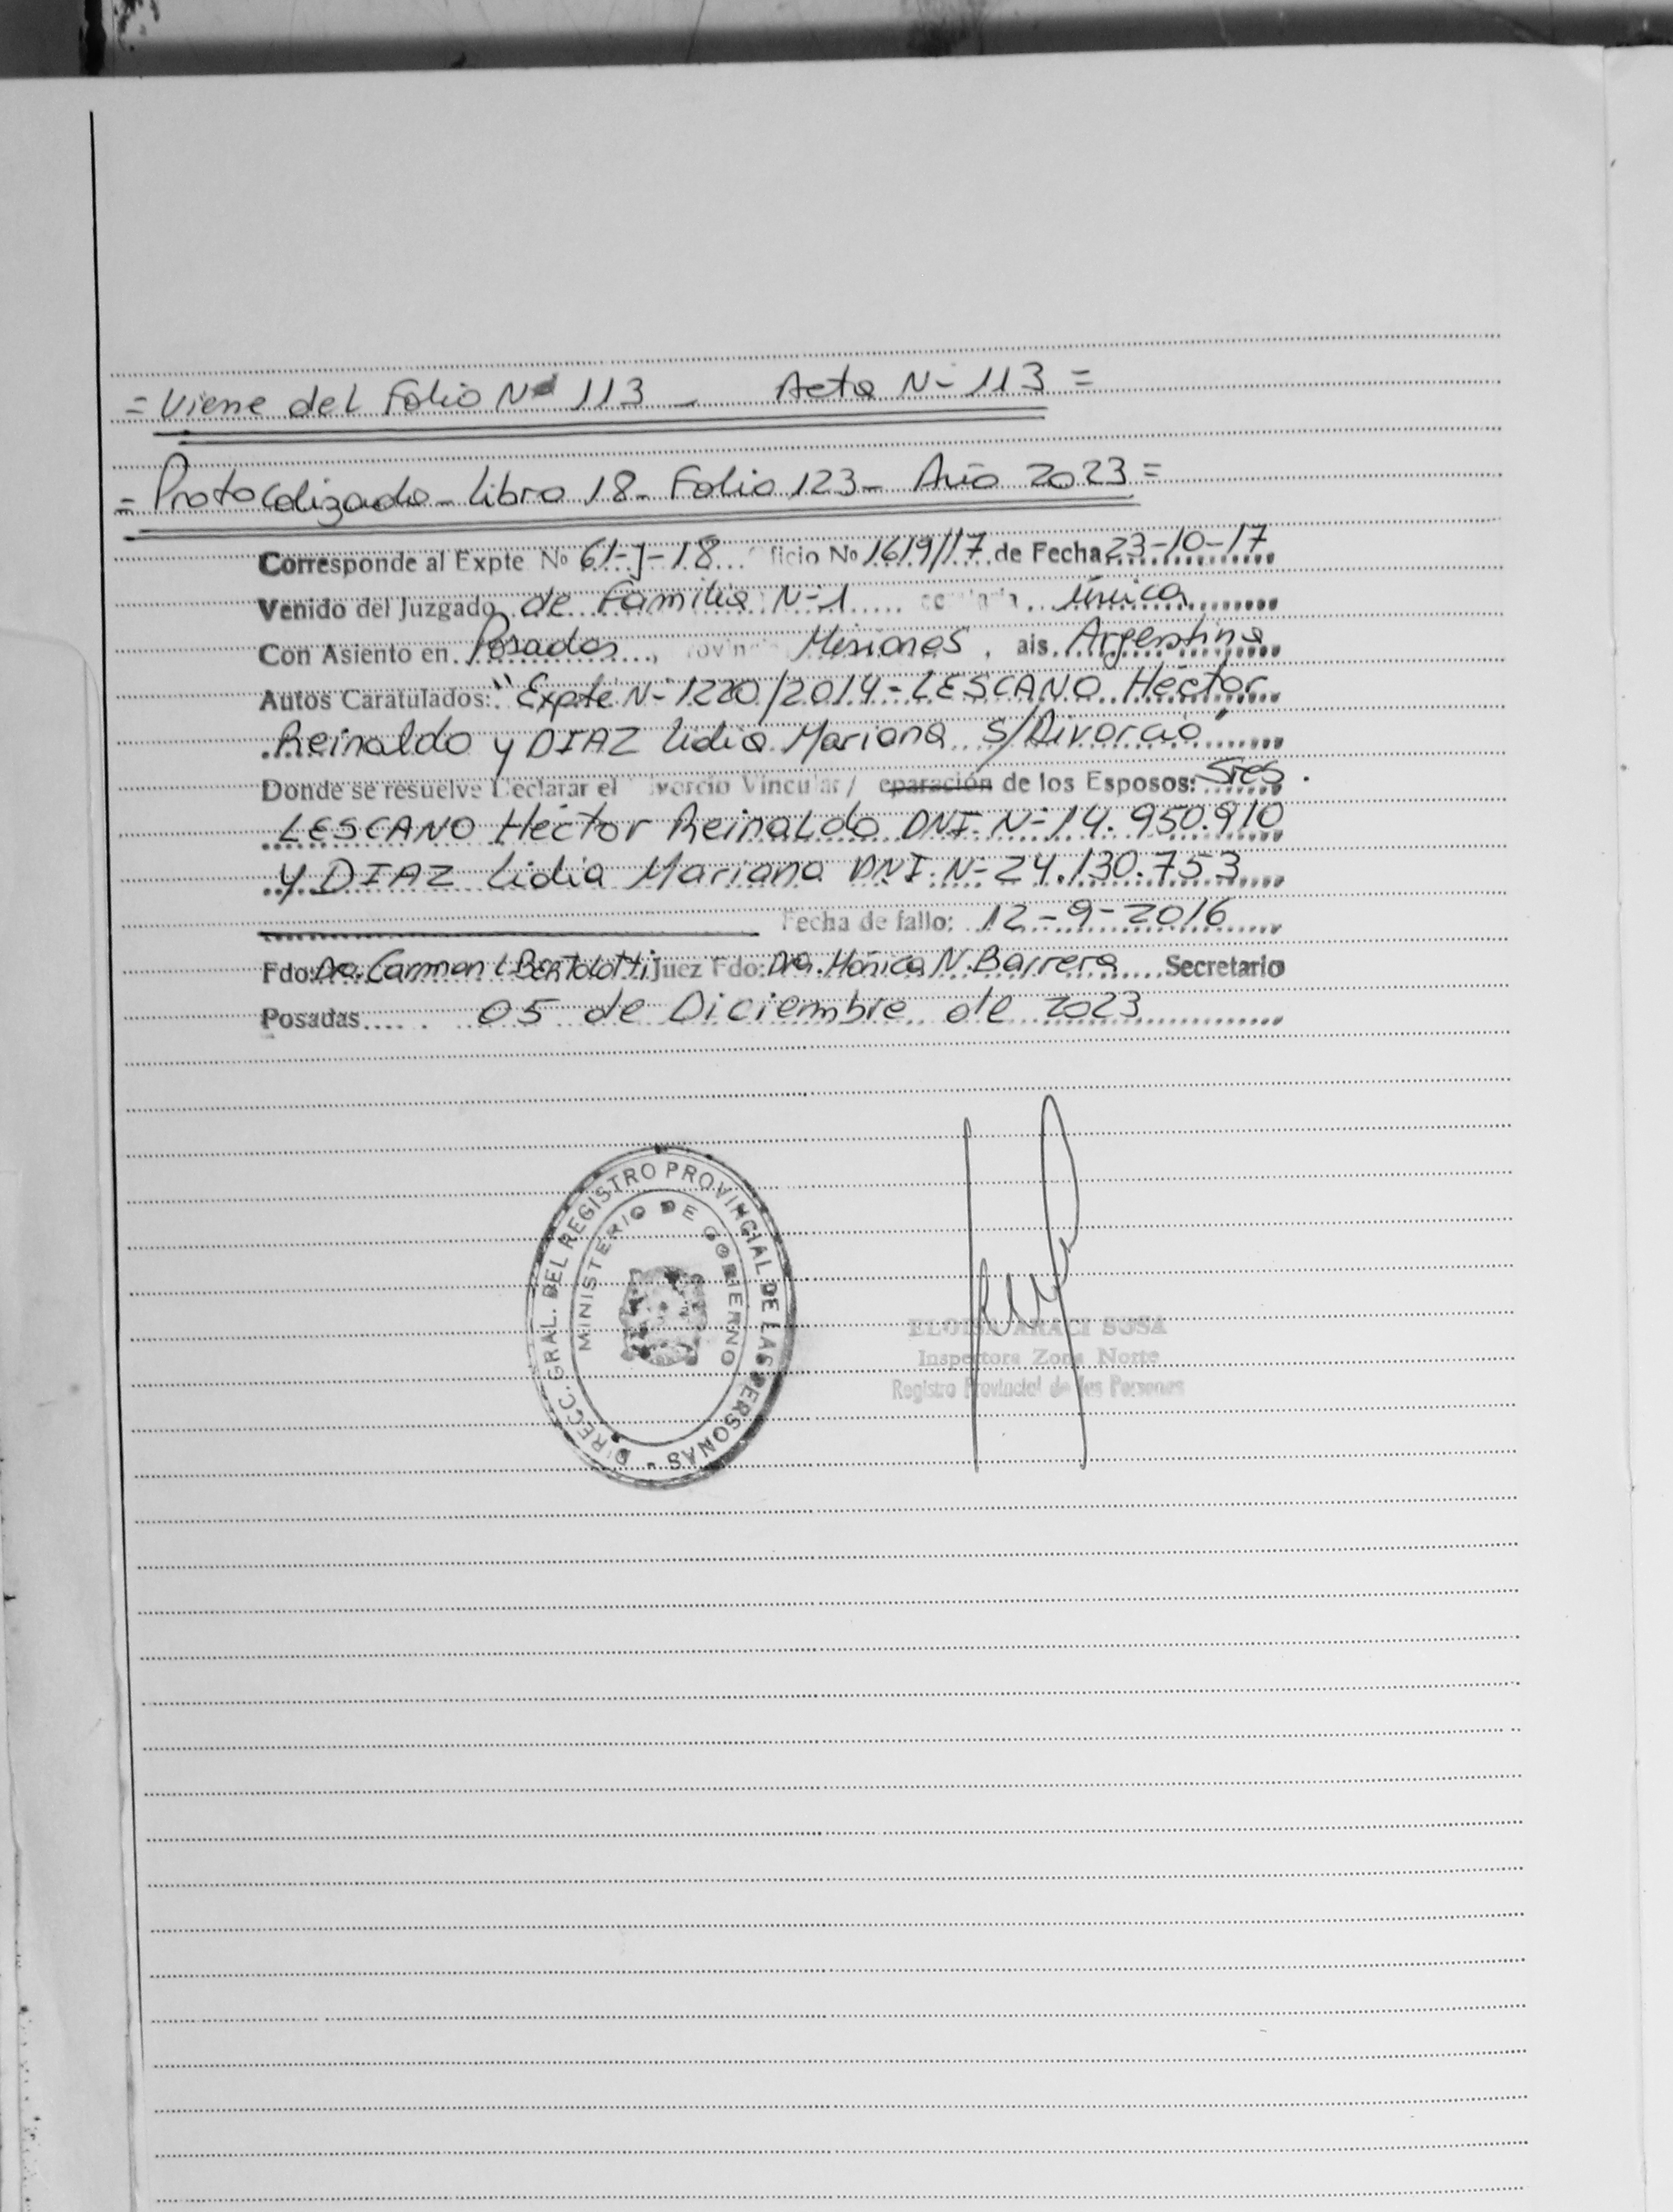 = Viene del Folio Nº 113 - Acta Nº 113 =
= Protocolizado - Libro 18 - Folio 123 - Año 2023 =
Corresponde al Expte Nº 61-J-18... ficio Nº 1619/17 de Fecha 23-10-17
Venido del Juzgado de Familia Nº 1..... única
Con Asiento en Posadas, Misiones, ais. Argentina
Autos Caratulados: "Expte Nº 1220/2014 - LESCANO Héctor
Reinaldo y DIAZ Lidia Mariana S/Divorcio"
Donde se resuelve Declarar el ivorcio Vincular / eparación de los Esposos: Sres.
LESCANO Héctor Reinaldo DNI. Nº 14.950.910
y DIAZ Lidia Mariana DNI. Nº 24.130.753
Fecha de fallo: 12-9-2016
Fdo: Dra. Carmen L Bertolotti Juez Fdo: Dra. Mónica N. Barrera Secretario
Posadas 05 de Diciembre de 2023
DIRECC. GRAL. DEL REGISTRO PROVINCIAL DE LAS PERSONAS -
MINISTERIO DE GOBIERNO
ELOISA ARACI SOSA
Inspectora Zona Norte
Registro Provincial de las Personas